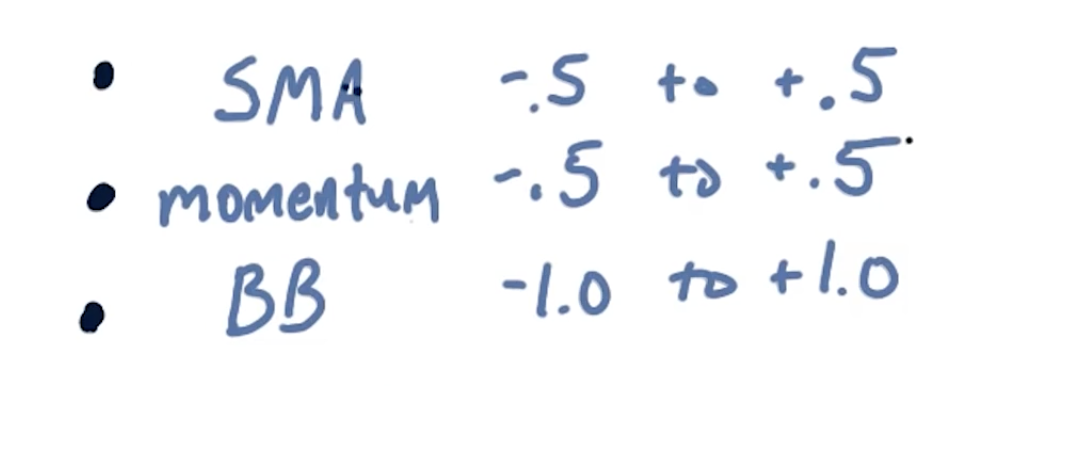 • SMA -.5 to +.5
• momentum -.5 to +.5
• BB -1.0 to +1.0